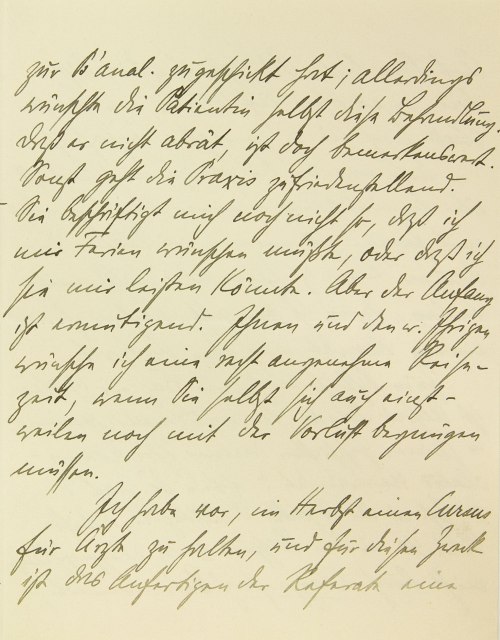 zur Ψanal. zugeschickt hat; allerdings
wünschte die Patientin selbst diese Behandlung.
Daß er nicht abrät, ist doch bemerkenswert.
Sonst geht die Praxis zufriedenstellend.
Sie beschäftigt mich noch nicht so, daß ich
mir Ferien wünschen müßte, oder daß ich
sie mir leisten könnte. Aber der Anfang
ist ermutigend. Ihnen und den w. Ihrigen
wünsche ich eine recht angenehme Reise-
zeit, wenn Sie selbst sich auch einst-
weilen noch mit der Vorlust begnügen
müssen.
Ich habe vor, im Herbst einen Cursus
für Ärzte zu halten, und für diesen Zweck
ist das Anfertigen der Referate eine